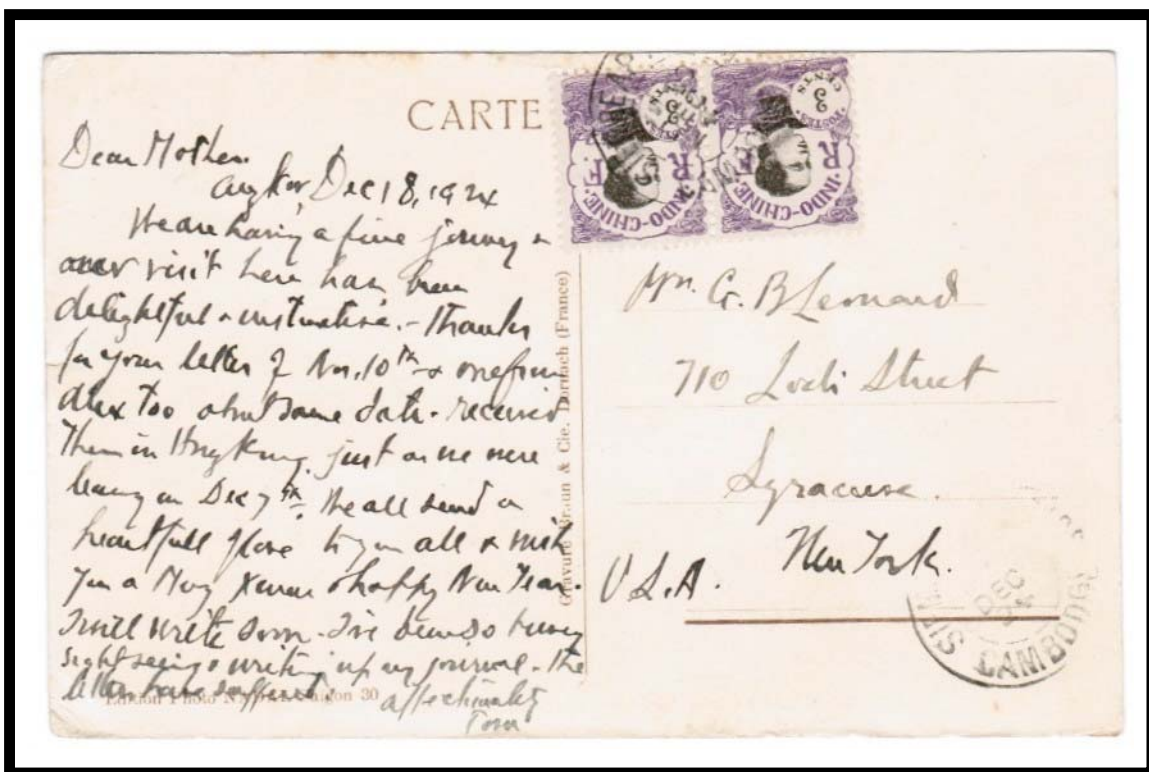 CARTE
Dear Mother.
Angkor, Dec 18, 1924
We are having a fine journey &
our visit here has been
delightful & instructive. - Thanks
for your letter of Nov. 10th & one from
Alex too about same date - received
them in Hong Kong just as we were
leaving on Dec 7th. We all send a
heart full of love to you all & wish
you a Mery Xmas & happy New Year.
I will write soon - I've been so busy
sight seeing & writing up my journal - the
letters have suffered
affectionately
Tom
Gravure Braun & Cie. Dornach (France)
Edition Photo Saigon 30
3
CENTS
POSTES
R F
INDO-CHINE
3
R F
INDO-CHINE
G. B Leonard
710 Lodi Street
Syracuse.
New York.
U.S.A.
DEC
24
CAMBODGE